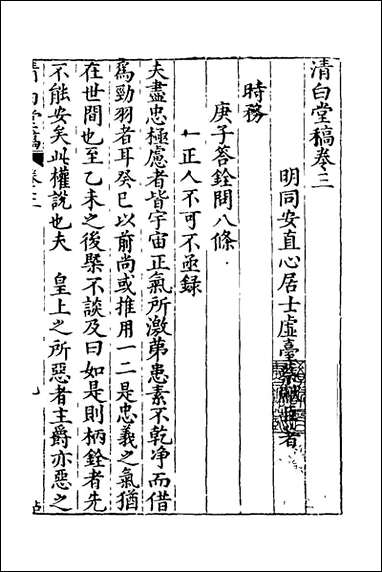 清白堂稿卷三
明同安直心居士虛臺蔡獻臣著
時務
庚子答銓問八條
一正人不可不亟録
夫盡忠極慮者皆宇宙正氣所激弟患素不乾净而借
爲勁羽者耳癸巳以前尚或推用一二是忠義之氣猶
在世間也至乙未之後槩不談及曰如是則柄銓者先
不能安矣此權說也夫 皇上之所惡者主爵亦惡之
清白堂稿 卷三